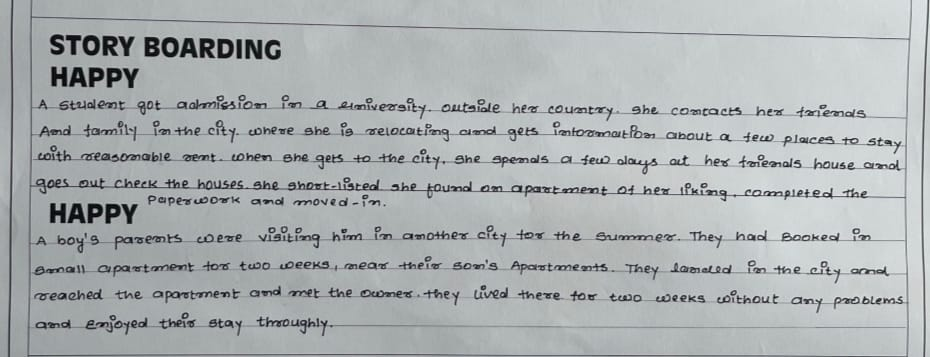 STORY BOARDING
HAPPY
A student got admission in a university. outside her country. she contacts her friends
And family in the city. where she is relocating and gets information about a few places to stay
with reasonable rent. when she gets to the city, she spends a few days at her friends house and
goes out check the houses. she short-listed she found an apartment of her liking, completed the
paperwork and moved-in.
HAPPY
A boy's parents were visiting him in another city for the summer. They had Booked in
small apartment for two weeks, near their son's Apartments. They landed in the city and
reached the apartment and met the owner. they lived there for two weeks without any problems
and enjoyed their stay throughly.